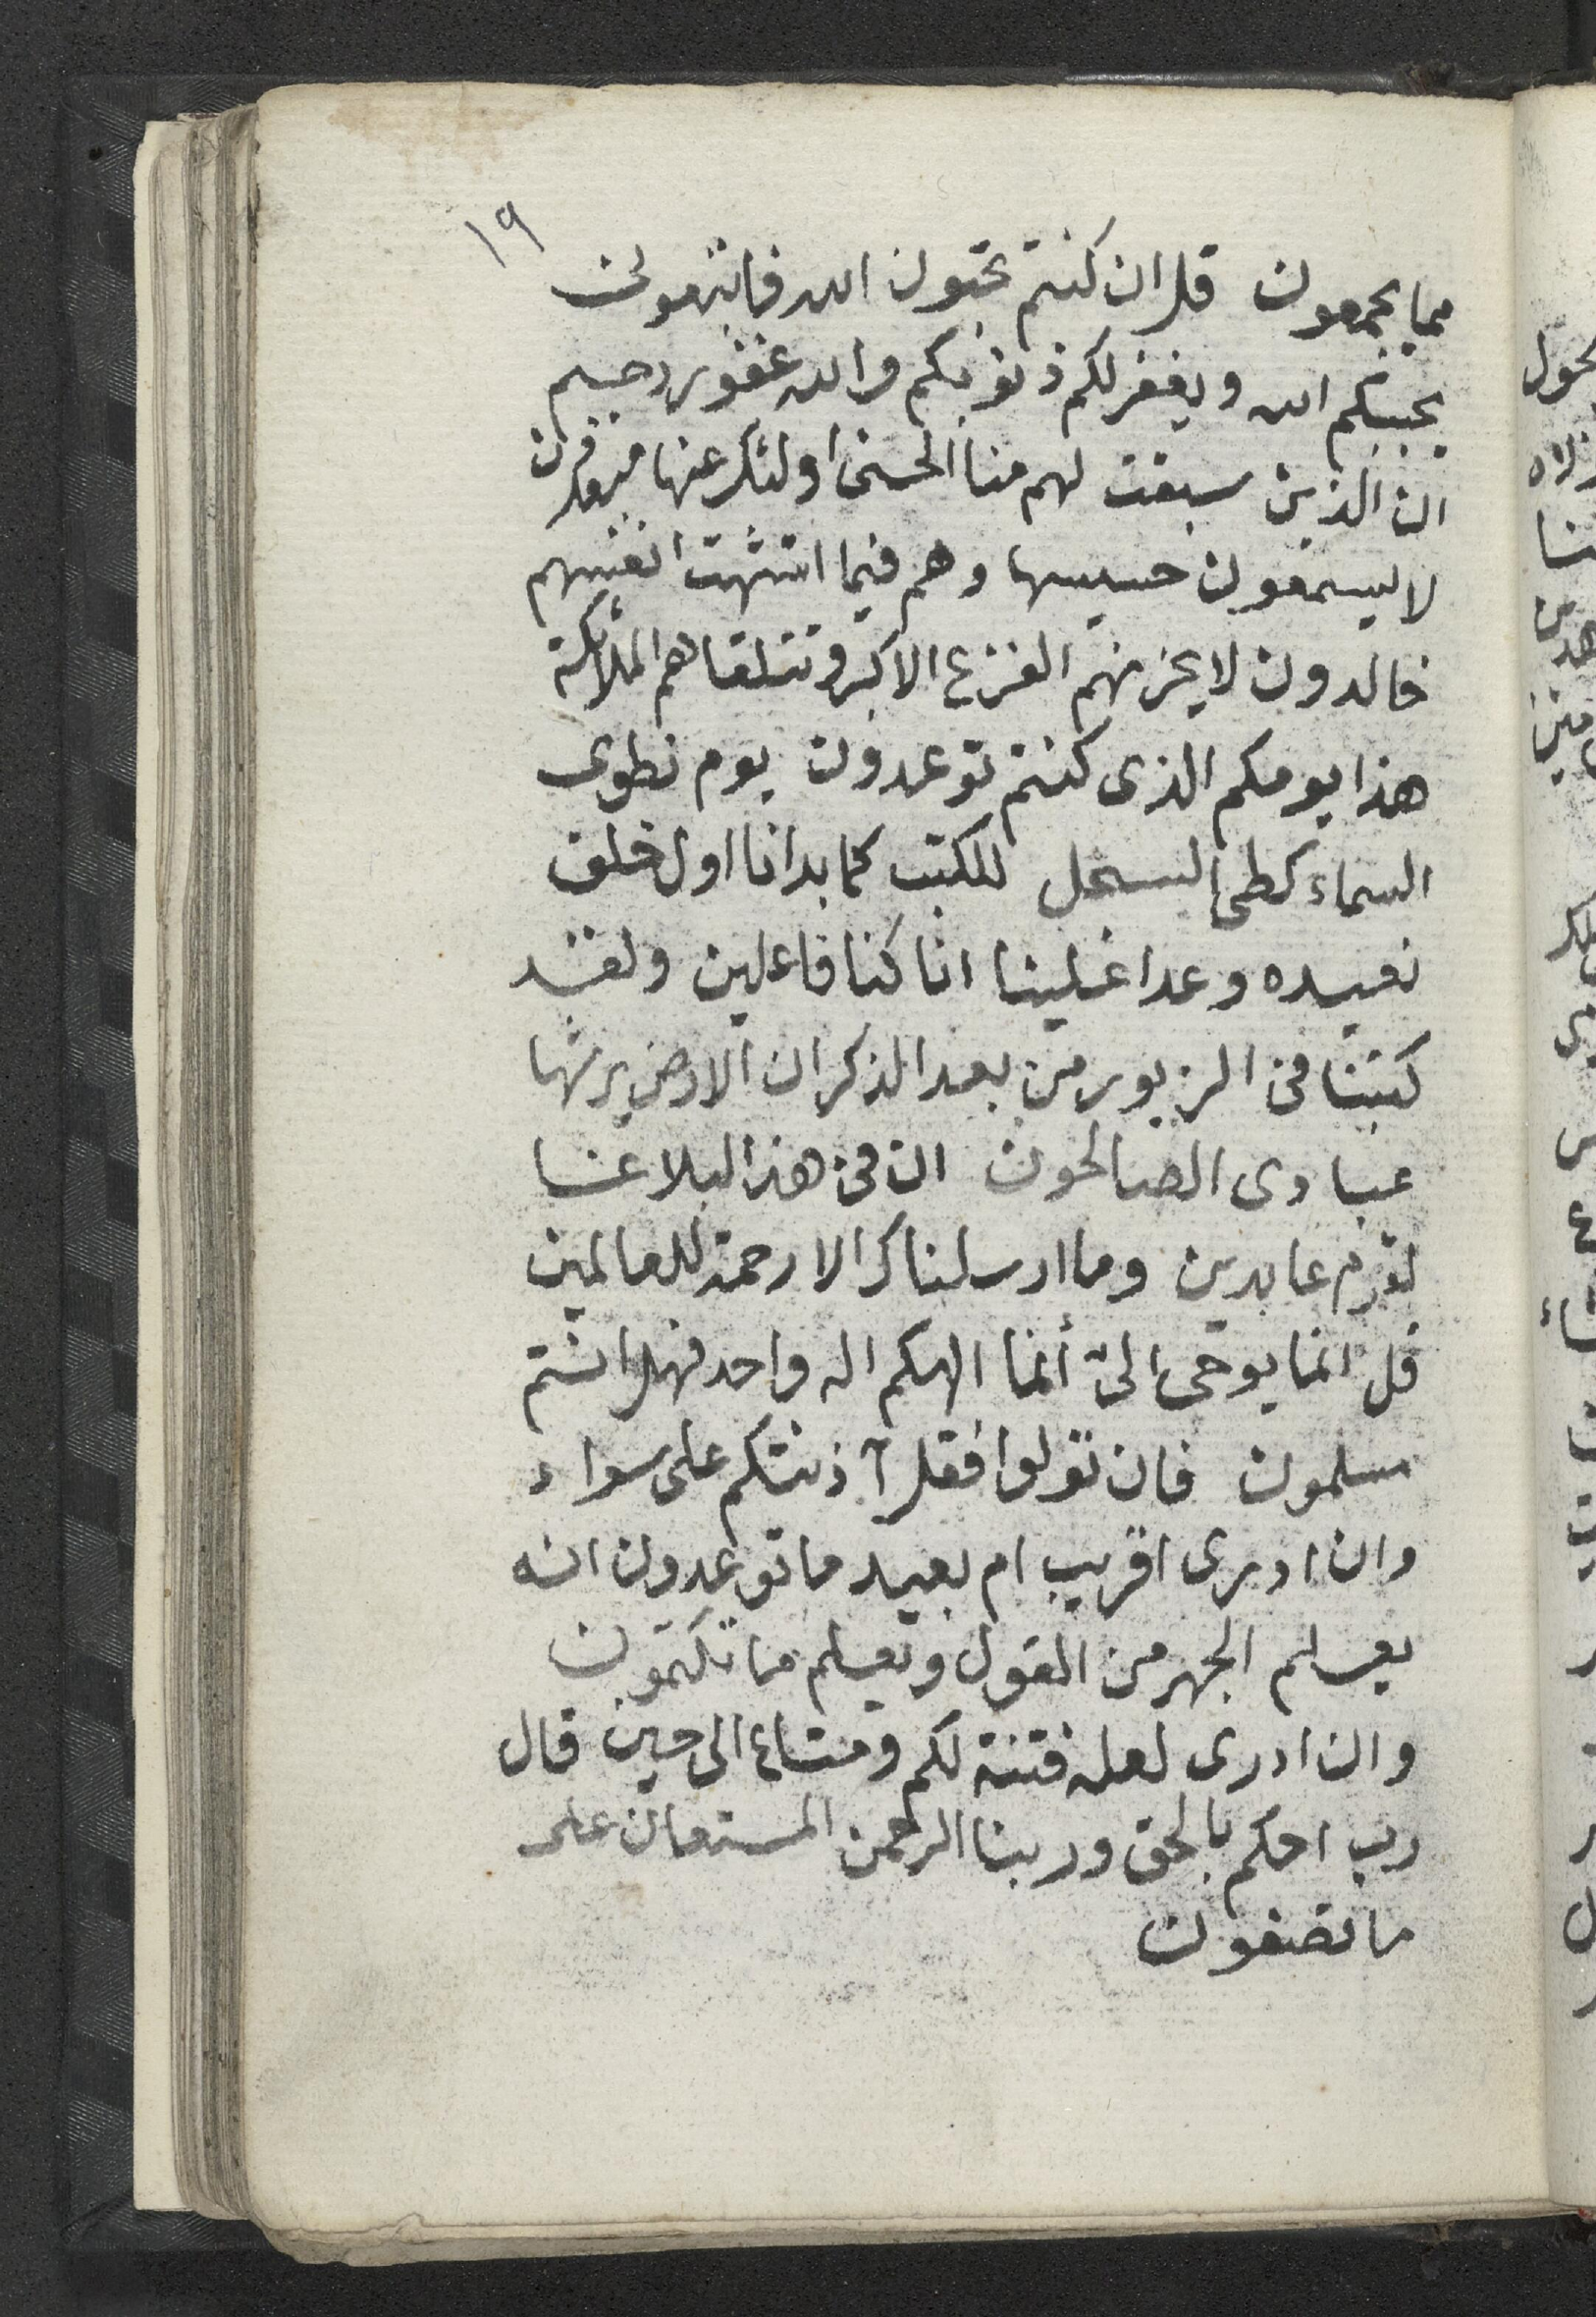 ١٩
مما يجمعون قل ان كنتم تحبون الله فاتبعونى
يحببكم الله ويغفر لكم ذنوبكم والله غفور رحيم
ان الذين سبقت لهم منا الحسنى اولئك عنها مبعدون
لا يسمعون حسيسها وهم فيما اشتهت انفسهم
خالدون لا يحزنهم الفزع الاكبر وتتلقاهم الملائكة
هذا يومكم الذى كنتم توعدون يوم نطوى
السماء كطى السجل للكتب كما بدانا اول خلق
نعيده وعدا علينا انا كنا فاعلين ولقد
كتبنا فى الزبور من بعد الذكر ان الارض يرثها
عبادى الصالحون ان فى هذا لبلاغا
لقوم عابدين وما ارسلناك الا رحمة للعالمين
قل انما يوحى الىّ أنما الهكم اله واحد فهل انتم
مسلمون فان تولوا فقل آذنتكم على سواء
وان ادرى اقريب ام بعيد ما توعدون انه
يعلم الجهر من القول ويعلم ما تكتمون
وان ادرى لعله فتنة لكم ومتاع الى حين قال
رب احكم بالحق وربنا الرحمن المستعان على
ما تصفون